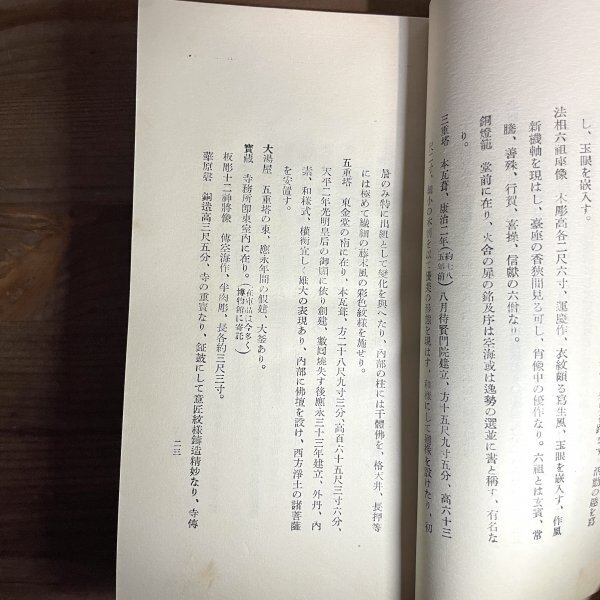 し、玉眼を嵌入す。
法相六祖座像　木彫高各二尺六寸、運慶作、衣紋頗る寫生風、玉眼を嵌入す、作風
新機軸を現はし、臺座の香狹間見る可し、肖像中の優作なり。六祖とは玄賓、常
騰、善殊、行賀、喜操、信叡の六樹なり。
銅燈籠　堂前に在り、火舍の扉の銘及序は空海或は逸勢の選並に書と稱す、有名な
り。
三重塔　本瓦葺、康治二年(約七八五年前)八月待賢門院建立、方十五尺九寸五分、高六十三
層のみ特に出組として變化を與へたり、內部の柱には千體佛を、格天井、長押等
には極めて纎細の藤末風の彩色紋樣を施せり。
五重塔　東金堂の南に在り、本瓦葺、方二十八尺九寸三分、高百六十五尺三寸六分、
天平二年光明皇后の御願に依り創建、數囘燒失す後應永三十三年建立、外丹、內
素、和樣式、權衡宜しく雄大の表現あり、內部に佛壇を設け、西方淨土の諸菩薩
を安置す。
大湯屋　五重塔の東、應永年間の假建、大釜あり。
寶藏　寺務所卽東室內に在り。(在庫品は今多く博物館に寄託)
板彫十二神將像　傳空海作、半肉彫、長各約三尺三寸。
華原磬　銅造高三尺五分、寺の重寶なり、鉦鼓にして意匠紋樣鑄造精妙なり、寺傳
二三